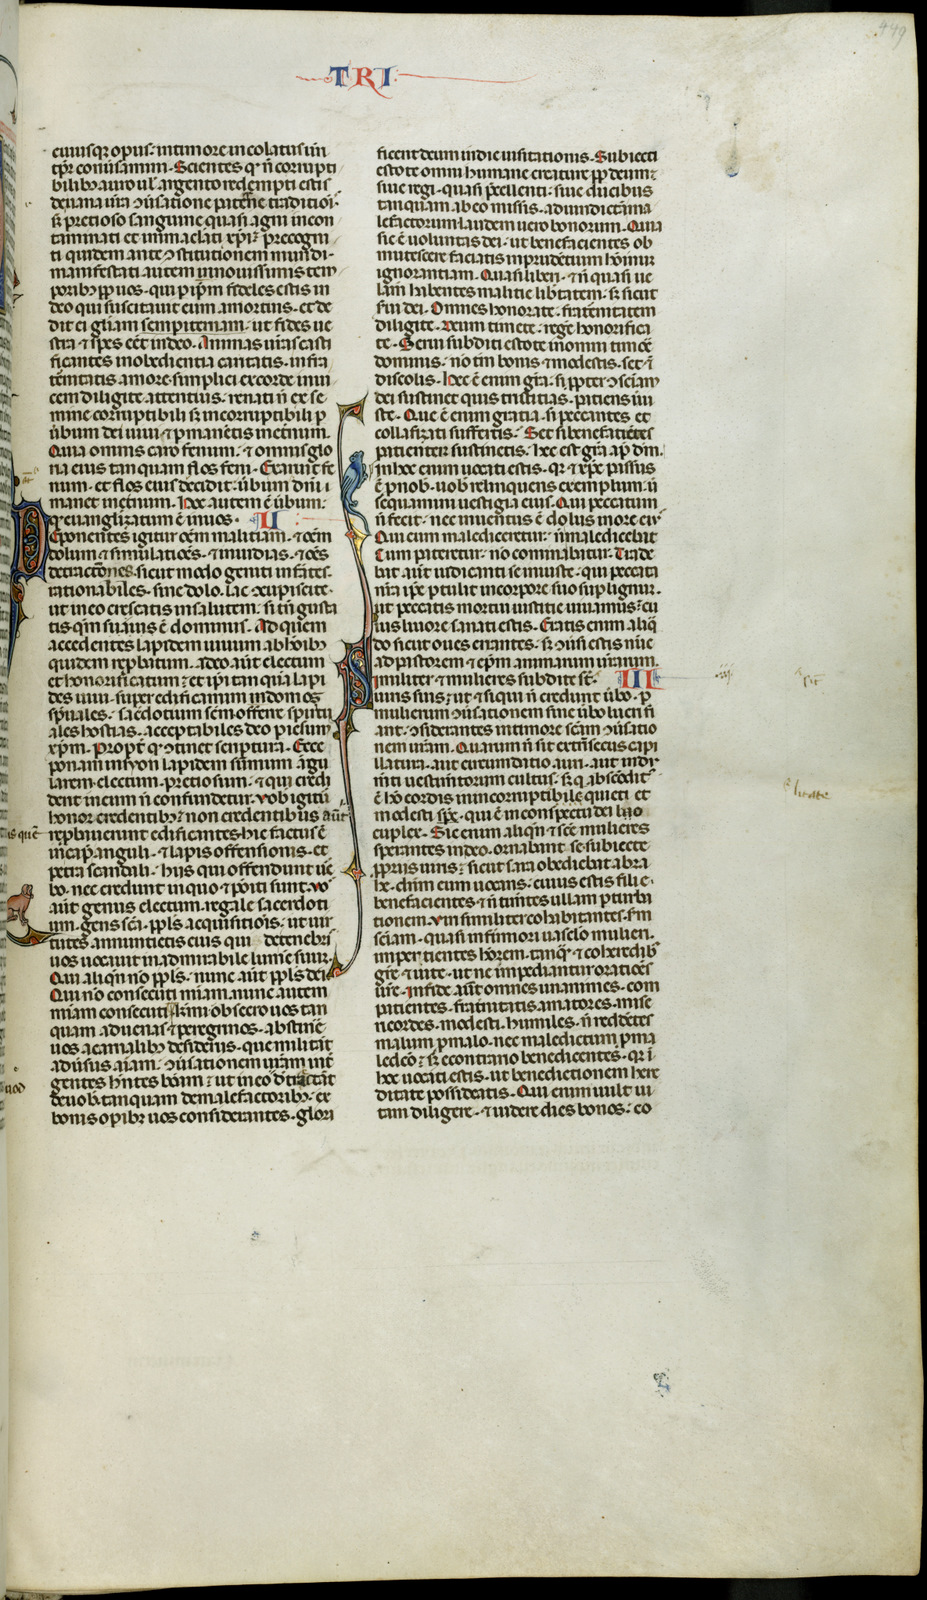 449
TRI
cuiusq; opus· intimore incolatus ur̄i
tp̄r conuersamini· Scientes q̄ n̄ corrupti
bilib; auro ul' argento redempti estis
de uana ur̄a ↄ̄uersatione paterne traditiōis·
s; pretioso sanguine quasi agni incon
taminati et inmaculati xp̄i· precogni
ti quidem ante ↄ̄stitutionem mundi·
manifestati autem in nouissimis tem
porib; pp̄ uos· qui p ip̄m fideles estis in
deo qui suscitauit eum a mortuis· et de
dit ei gl'iam sempiternam· ut fides ue
stra ⁊ spes eēt in deo· Animas ur̄as casti
ficantes in obedientia caritatis· in fra
t̄nitatis amore· simplici ex corde inui
cem diligite attentius· renati n̄ ex se
mine corruptibili s; incorruptibili p
ūbum dei uiui ⁊ p manētis inet̄num·
Quia omnis caro fenum· ⁊ omnis glo
ria eius tanquam flos feni· Exaruit fe
num· et flos eius decidit· ūbum dn̄i
manet inet̄num· Hec autem ē ūbum·
q̄ euangl̄izatum ē in uos· II
Deponentes igitur oēm malitiam· ⁊ oēm
dolum ⁊ simulatiōes· ⁊ inuidias· ⁊ oēs
detractiones· sicut modo geniti infātes·
rationabiles· sine dolo· lac ↄ̄cupiscite·
ut in eo crescatis in salutem· si tn̄ gusta
tis qm̄ suauis ē dominus· Ad quem
accedentes lapidem uiuum ab hōib;
quidem rep̄batum· a deo aūt electum
et honorificatum· et ip̄i tanqua lapi
des uiui· super edificamini in domos
sp̄uales· sacēdotium sc̄m offerre spiritu
ales hostias· acceptabiles deo p iesum
xp̄m· Propt̄ q̄ ↄ̄tinet scriptura· Ecce
ponam in syon lapidem summum āgu
larem· electum· pretiosum· ⁊ qui credi
derit in eum n̄ confundetur· vob igitū
honor credentib;· non credentibus aūt
lapis quē
rep̄bauerunt edificantes· hic factus ē
in cap̄ anguli· ⁊ lapis offensionis· et
petra scandali· hijs qui offendunt ūe
bo· nec credunt in quo ⁊ poīti sunt· vo
aūt genus electum· regale sacerdoti
um· gens sc̄a· pp̄ls acquisitiōis· ut uir
tutes annuntietis eius qui de tenebris
uos uocauit in admirabile lum̄e suū·
Qui aliqn̄ nō pp̄ls· nunc aūt pp̄ls dei·
Qui nō consecuti mīam· nunc autem
mīam consecuti· Kr̄mi obsecro uos tan
quam aduenas ⁊ peregrinos· abstinē
uos a carnalib; desideriis· que militāt
aduersus aīam· ↄ̄uersationem ur̄am int̄
gentes hn̄tes bonā· ut in eo q̄ detractāt
de uob tanquam de malefactorib;· ex
bonis opib; uos considerantes· glori
ficent deum in die uisitationis· Subiecti
estote omni humane creature pp̄ deum·
siue regi· quasi p̄cellenti· siue ducibus
tanquam ab eo missis· ad uindictā ma
lefactorum· laudem uero bonorum· Quia
sic ē uoluntas dei· ut benefacientes ob
mutescere faciatis inprudētium hōinū
ignorantiam· Quasi liberi· ⁊ n̄ quasi ue
lam̄ habentes malitie lib̄tatem· s; sicut
s̄ui dei· Omnes honorate· frat̄nitatem
diligite· deum timete· regē honorifica
te· Serui subditi estote in omni timore
dominis· nō tm̄ bonis ⁊ modestis· set ⁊
discolis· Hec ē enim gr̄a· si pp̄ter ↄ̄sciam
dei sustinet quis tristitias· patiens iniu
ste· Que ē enim gratia· si peccantes et
collafizati suffertis· Set si benefaciētes
patienter sustinetis· hec est gr̄a ap̄ dm̄·
in hoc enim uocati estis· q̄ ⁊ xp̄c passus
ē p nob· uob relinquens exemplum· ū
sequamini uestigia eius· Qui peccatum
n̄ fecit· nec inuentus ē dolus in ore ei;
Qui cum malediceretur· n̄ maledicebat
Cum pateretur· nō comminabatur· Trade
bat aūt iudicanti se iniuste· qui peccata
nr̄a ip̄e ptulit in corpore suo sup lignū·
ut peccatis mortui iusticie uiuamus· cu
ius liuore sanati estis· Eratis enim aliq̄
do sicut oues errantes· s; ↄ̄uersi estis nūc
ad pastorem ⁊ ep̄m animarum ur̄arum·
Similiter ⁊ mulieres subdite sīt III
·iij·
uiris suis· ut ⁊ si qui n̄ credunt ūbo· p
mulierum ↄ̄uersationem sine ūbo lucri fi
ant· ↄ̄siderantes in timore sc̄am ↄ̄uersatio
nem ur̄am· Quarum n̄ sit extrīsecus capi
llatura· aut circumdatio auri· aut indu
mīti uestimtorum cultus· s; q̄ absc̄ōdit
ē hō cordis in incorruptibilē quieti et
modesti sp̄c· qui ē in conspectu dei
cuplex· Sic enim aliqn̄ ⁊ sc̄e mulieres
sperantes in deo· ornabant se subiecte
pp̄riis uiris· sicut sara obediebat abra
he· dn̄m eum uocans· cuius estis filie·
benefacientes ⁊ n̄ timētes ullam p turba
tionem· viri similiter cohabitantes· s̄m
sciam· quasi infirmori uasclo mulieri·
impertientes honorem· tanq̄ ⁊ coheredib;
gr̄e ⁊ uite· ut ne impediantur oratiōes
ur̄e· in fide aūt omnes unanimes· com
patientes· frat̄nitatis amatores· mise
ricordes· modesti· humiles· n̄ reddētes
malum p malo· nec maledictum p ma
ledcō· s; econtrario benedicentes· q̄ ī
hoc uocati estis· ut benedictionem here
ditate possideatis· Qui enim uult ui
tam diligere· ⁊ uidere dies bonos· co